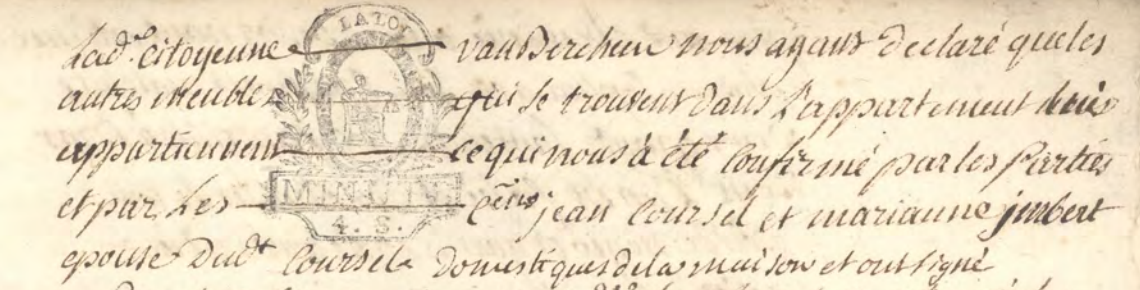 Lad.e Citoyenne vanDerchen nous ayant declaré que les
LA LOI
autres meubles qui se trouvent dans l'appartement
appartiennent ce qui nous à été Confirmé par les Parties
MINUTE
et par Les Cens jean Coursel et marianne jmbert
4. S.
epouse Dudt Coursel Domestiques de la maison et ont signé